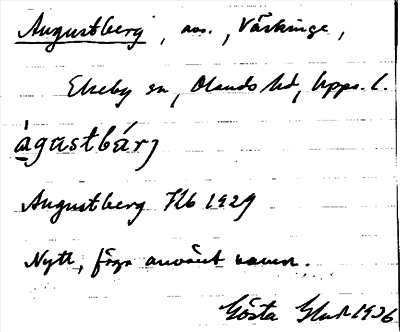 Augustberg, avs., Väskinge,
Ekeby sn, Olands hd, Upps. l.
águstbárj
Augustberg Kb 1929
Nytt, föga använt namn.
Gösta 1936